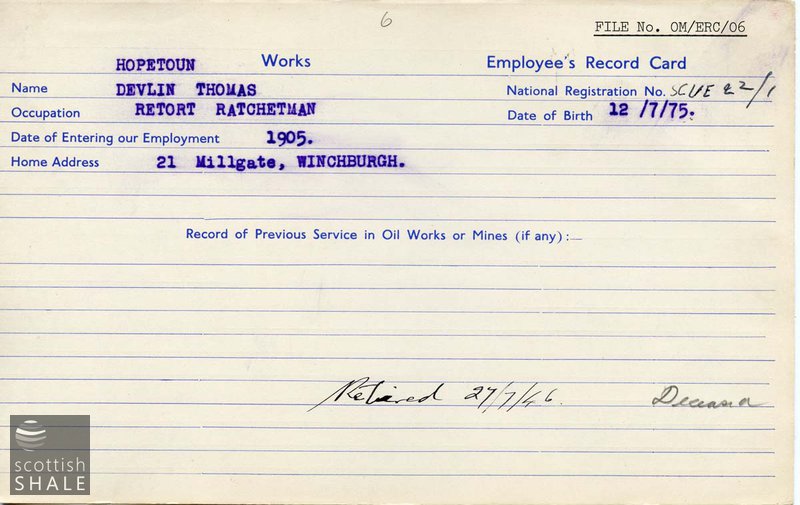 6
FILE No. OM/ERC/06
HOPETOUN Works Employee's Record Card
Name DEVLIN THOMAS National Registration No. SCUE 22/1
Occupation RETORT RATCHETMAN Date of Birth 12/7/75.
Date of Entering our Employment 1905.
Home Address 21 Millgate, WINCHBURGH.
Record of Previous Service in Oil Works or Mines (if any):—
Retired 27/7/46. Deceased
scottish
SHALE